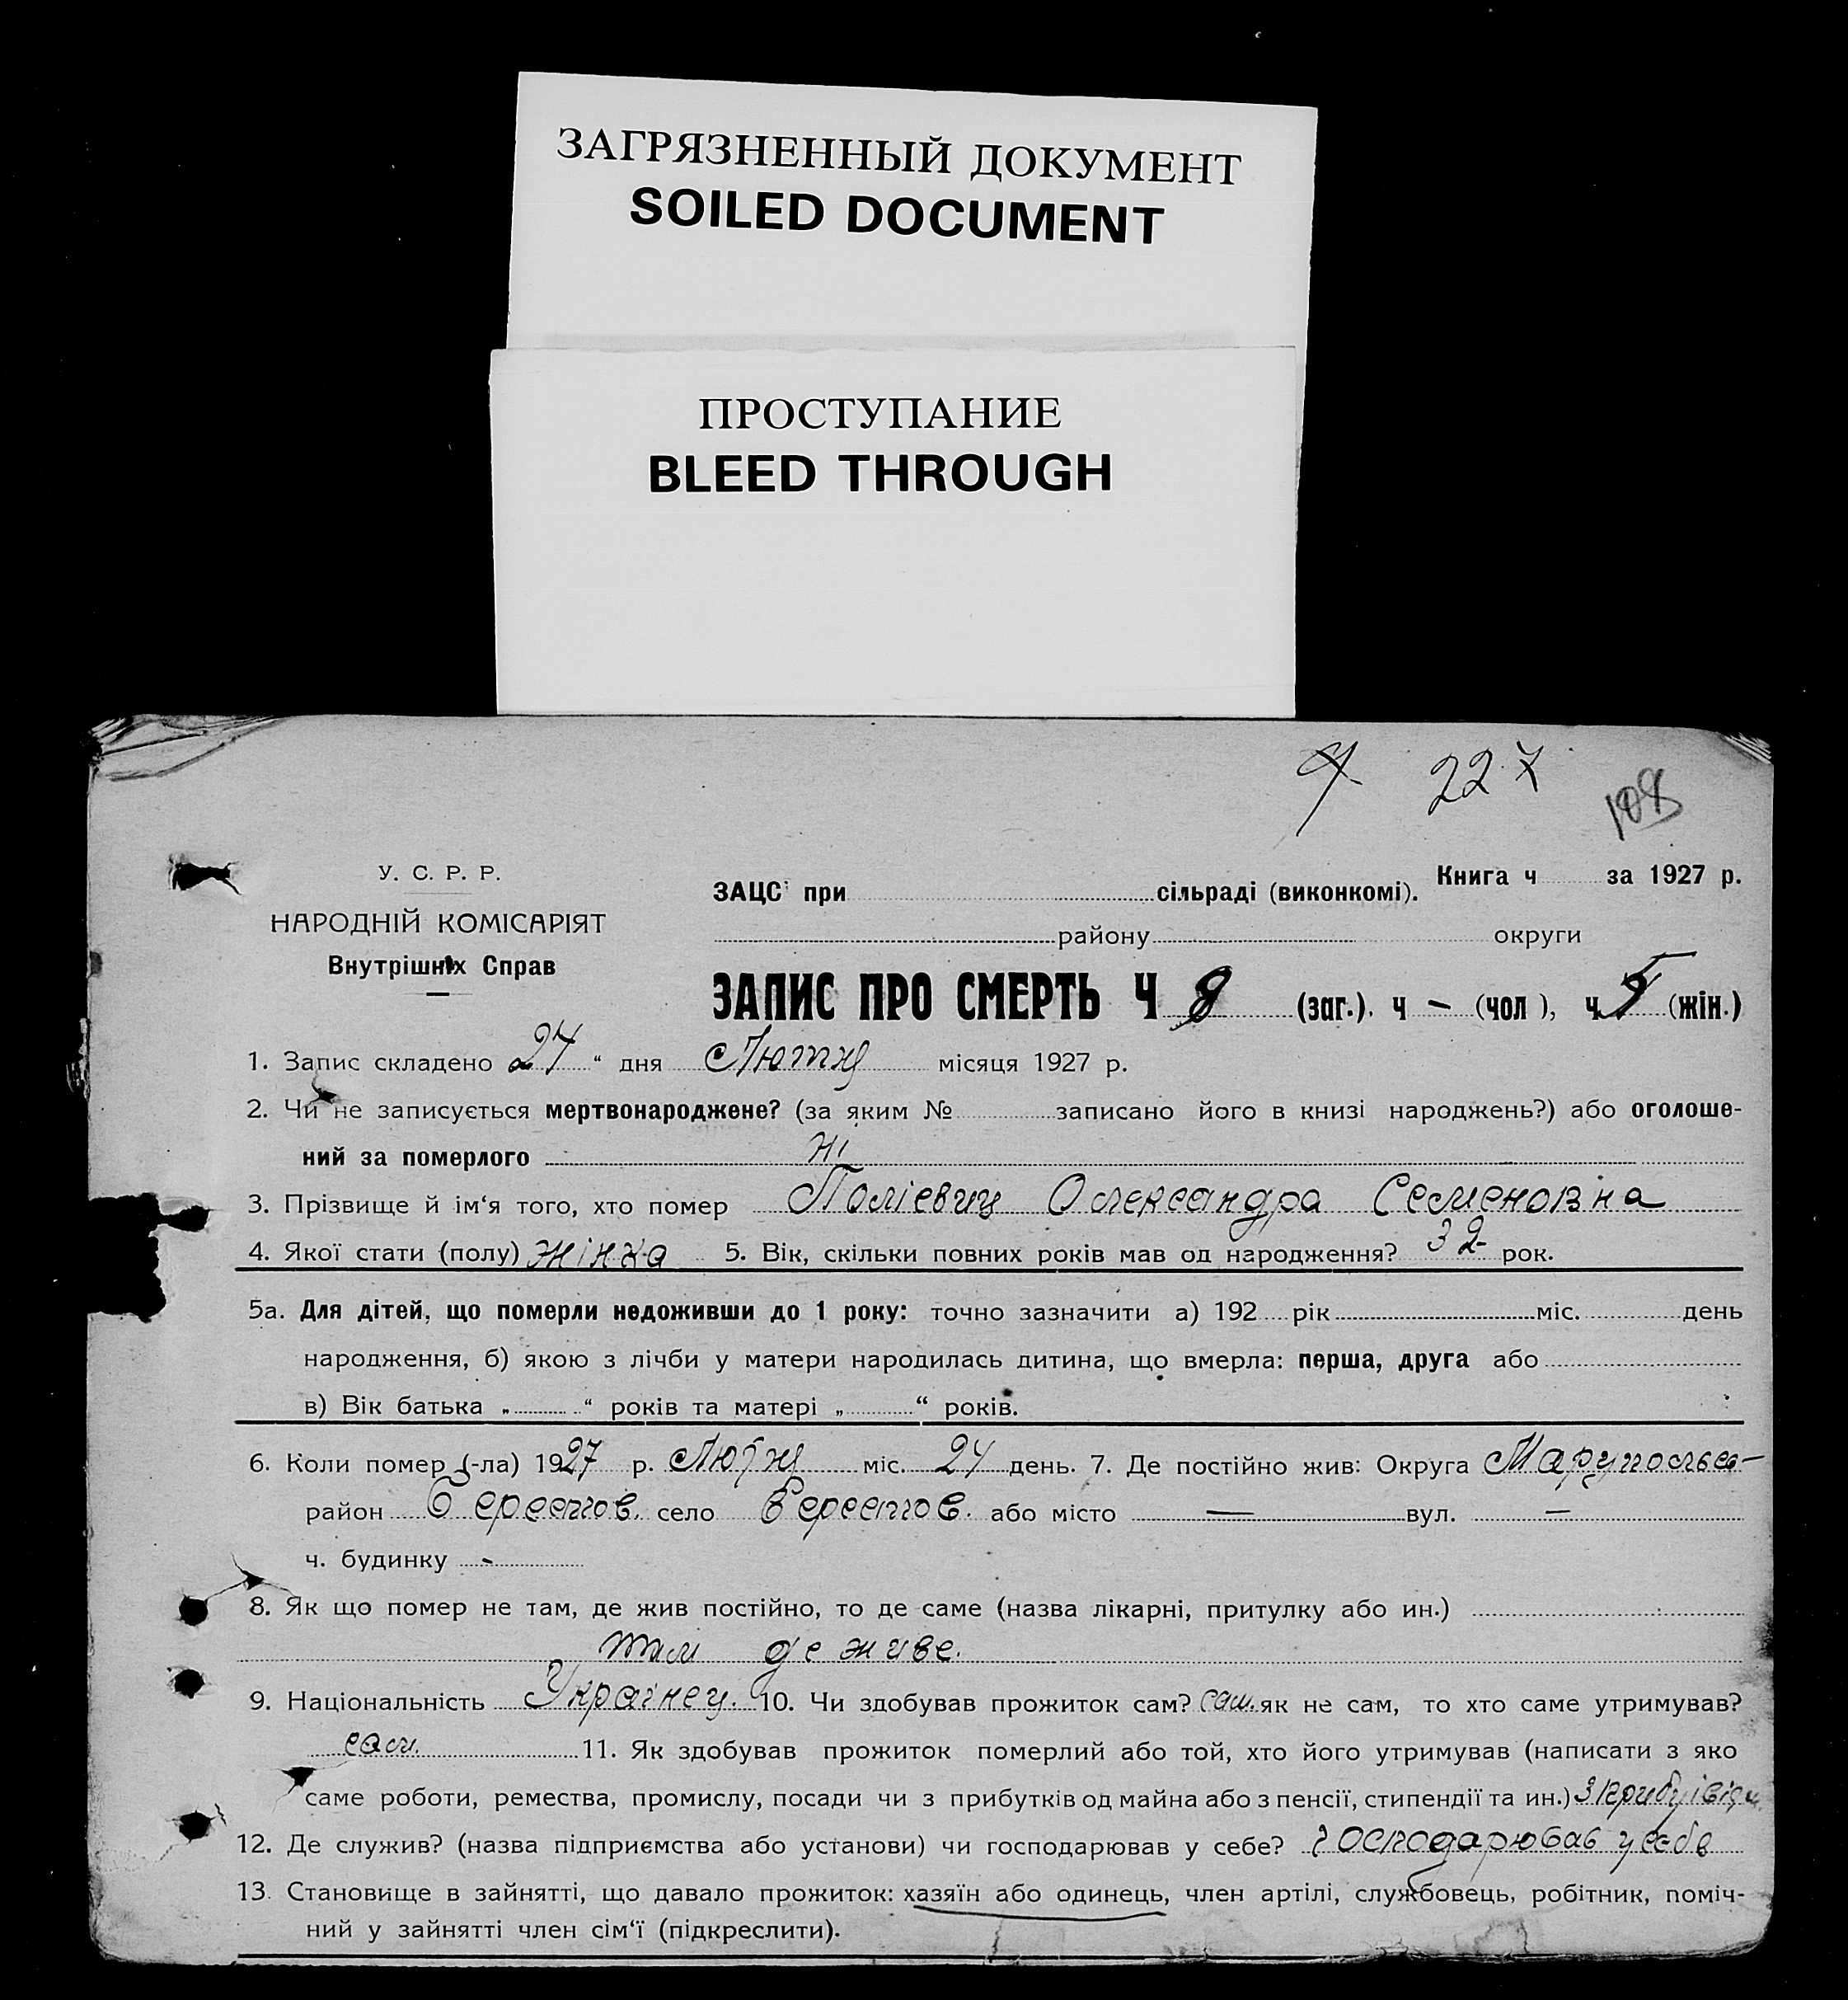 ЗАГРЯЗНЕННЫЙ ДОКУМЕНТ
SOILED DOCUMENT
ПРОСТУПАНИЕ
BLEED THROUGH
22 7
108
У. С. Р. Р.
НАРОДНІЙ КОМІСАРІЯТ
Внутрішніх Справ
ЗАЦС при сільраді (виконкомі). Книга ч за 1927 р.
району округи
ЗАПИС ПРО СМЕРТЬ Ч 8 (заг.). ч – (чол ), ч 5 (жін.)
1. Запис складено 24 “ дня Лютня місяця 1927 р.
2. Чи не записується мертвонароджене? (за яким № записано його в книзі народжень?) або оголоше-
ний за померлого ні
3. Прізвище й ім‘я того, хто помер Полієвиц Олександра Семеновна
4. Якої стати (полу) жінка 5. Вік, скільки повних років мав од народження? 32 рок.
5а. Для дітей, що померли недоживши до 1 року: точно зазначити а) 192 рік міс. день
народження, б) якою з лічби у матери народилась дитина, що вмерла: перша, друга або
в) Вік батька „ “ років та матері „ “ років.
6. Коли помер (-ла) 1927 р. Лютня міс. 24 день. 7. Де постійно жив: Округа
район Берестов. село Берестов. або місто — вул. —
ч. будинку -
8. Як що помер не там, де жив постійно, то де саме (назва лікарні, притулку або ин.)
там де живе.
9. Національність Українец. 10. Чи здобував прожиток сам? сам. як не сам, то хто саме утримував?
сам. 11. Як здобував прожиток померлий або той, хто його утримував (написати з яко
саме роботи, ремества, промислу, посади чи з прибутків од майна або з пенсії, стипендії та ин.)
12. Де служив? (назва підприємства або установи) чи господарював у себе? господарював у себе
13. Становище в зайнятті, що давало прожиток: хазяїн або одинець, член артілі, службовець, робітник, поміч-
ний у зайнятті член сім‘ї (підкреслити).